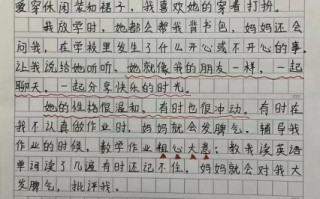 爱穿休闲装和裙子，我喜欢她的穿着打扮。
我放学时，她都会帮我背书包，妈妈还会
问我，在学校里发生了什么开心或不开心的事。
让我说给她听听。她就像我的朋友一样，一起
聊天，一起分享快乐的时光。
她的性格很温和，有时也很冲动。有时在
我不认真做作业时，妈妈就会发脾气，辅导我
作业的时候，数学作业粗心大意；教我读英语
单词读了几遍有时还记不住，妈妈就会对我大
发脾气，批评我。